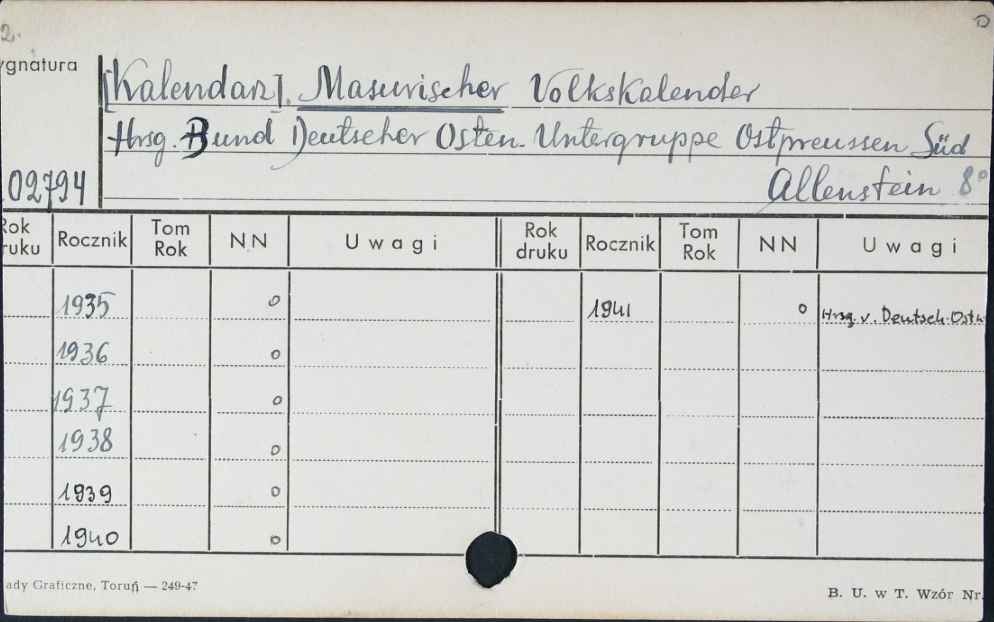 2.
ygnatura
[Kalendarz]. Masurischer Volkskalender
Hrsg. Bund Deutscher Osten. Untergruppe Ostpreussen Süd
02794 Allenstein 8°
Rok ruku Rocznik Tom Rok NN Uwagi Rok druku Rocznik Tom Rok NN Uwagi
1935 o 1941 o Hrsg. v. Deutsch.
1936 o
1937 o
1938 o
1939 o
1940 o
ady Graficzne, Toruń — 249-47 B. U. w T. Wzór Nr.